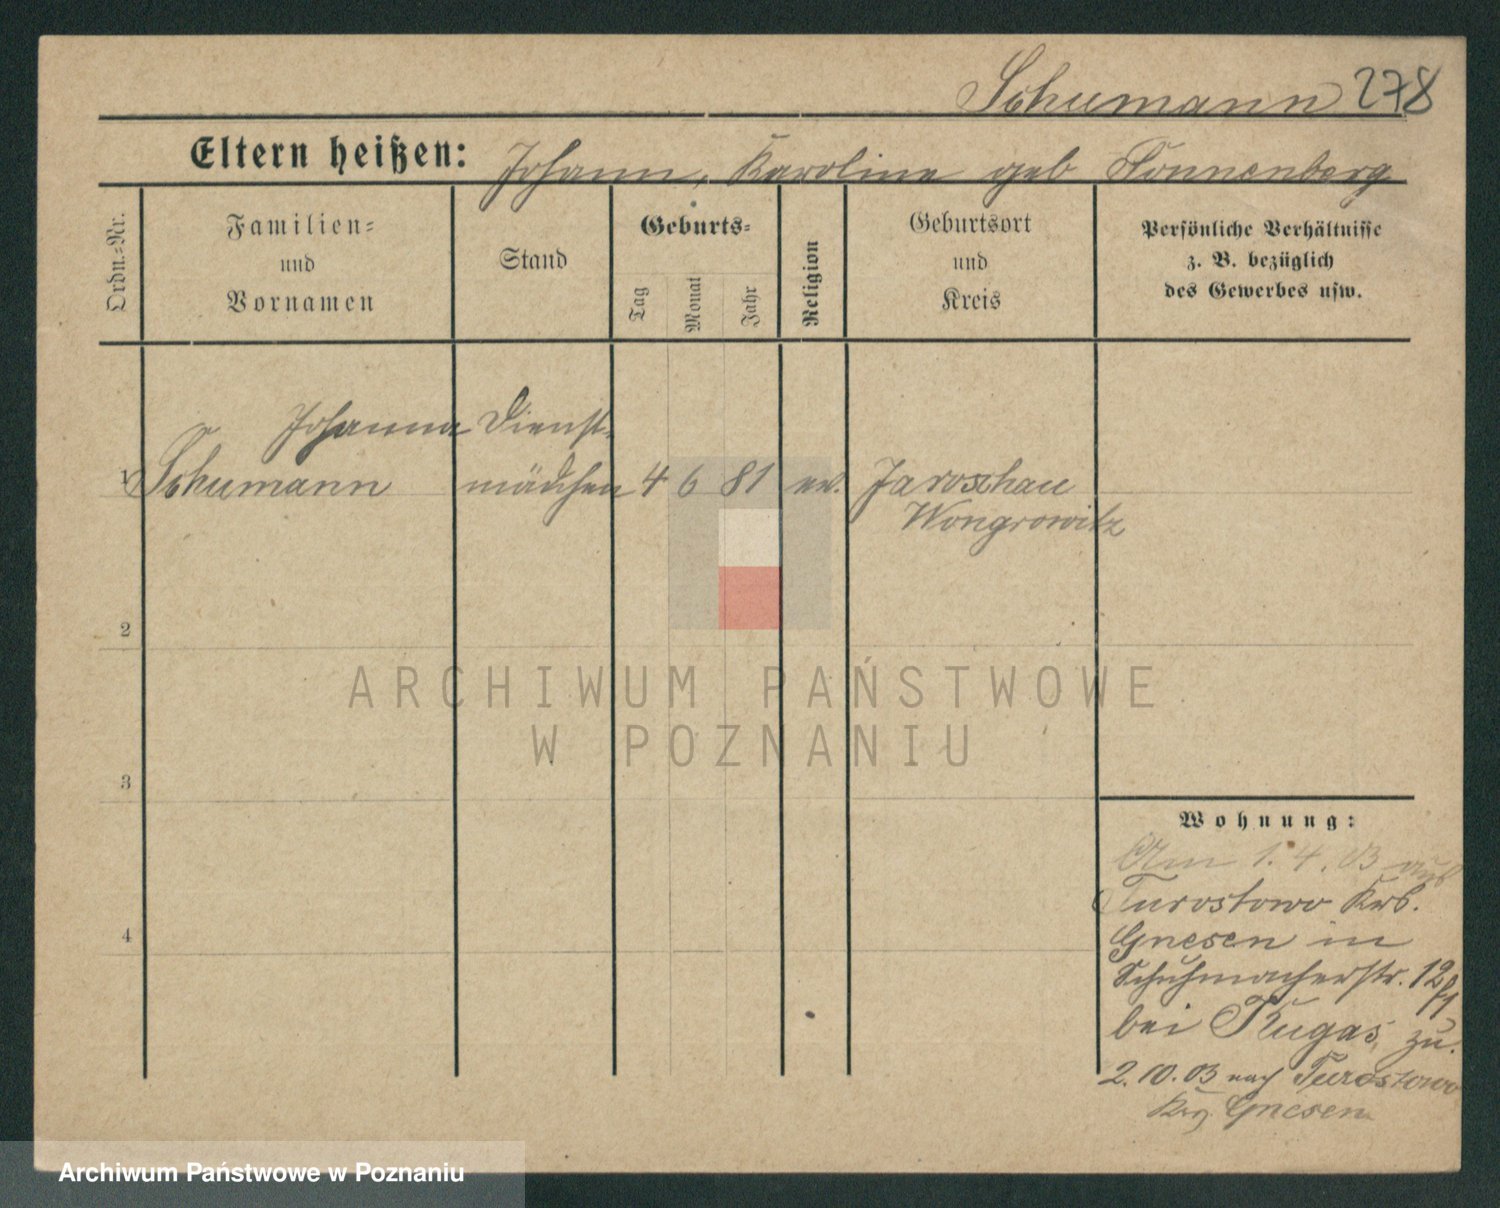 Schumann 278
Eltern heißen: Johann, Karoline geb Sonnenberg
Ordn.-Nr.
Familien-
und
Vornamen
Stand
Geburts-
Tag
Monat
Jahr
Religion
Geburtsort
und
Kreis
Persönliche Verhältnisse
z. B. bezüglich
des Gewerbes usw.
Johanna Dienst-
1 Schumann mädchen 4 6 81 ev. Jaroschau
Wongrowitz
2
3
4
ARCHIWUM PAŃSTWOWE
W POZNANIU
Wohnung:
Am 1.4.03 aus
Turostowo Krs.
Gnesen in
Schuhmacherstr. 12
bei Kugas zu.
2.10.03 nach Turostowo
Krs. Gnesen
Archiwum Państwowe w Poznaniu